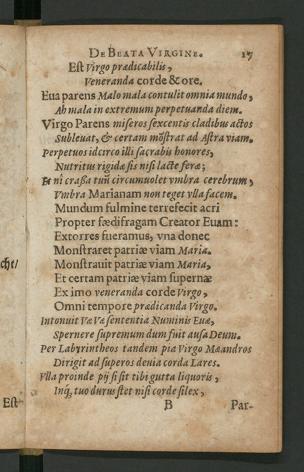 DE BEATA VIRGINE. 17
Est Virgo prædicabilis,
Veneranda corde & ore.
Eua parens Malo mala contulit omnia mundo,
Ah mala in extremum perpetuanda diem.
Virgo Parens miseros sexcentis cladibus actos
Subleuat, & certam mõstrat ad Astra viam.
Perpetuos idcirco illi sacrabis honores,
Nutritus rigidæ sis nisi lacte feræ;
Et ni crassa tuũ circumuolet vmbra cerebrum,
Vmbra Marianam non teget vlla facem.
Mundum fulmine terrefecit acri
Propter fœdifragam Creator Euam:
Extorres fueramus, vna donec
Monstraret patriæ viam Maria.
Monstrauit patriæ viam Maria,
Et certam patriæ viam supernæ
Ex imo veneranda corde Virgo,
Omni tempore prædicanda Virgo.
Intonuit Væ Væ sententia Numinis Euæ,
Spernere supremum dum fuit ausa Deum.
Per Labyrintheos tandem pia Virgo Mæandros
Dirigit ad superos deuia corda Lares.
Vlla proinde pij si sit tibi gutta liquoris,
Inq; tuo durus stet nisi corde silex,
B Par-
cht/
Est